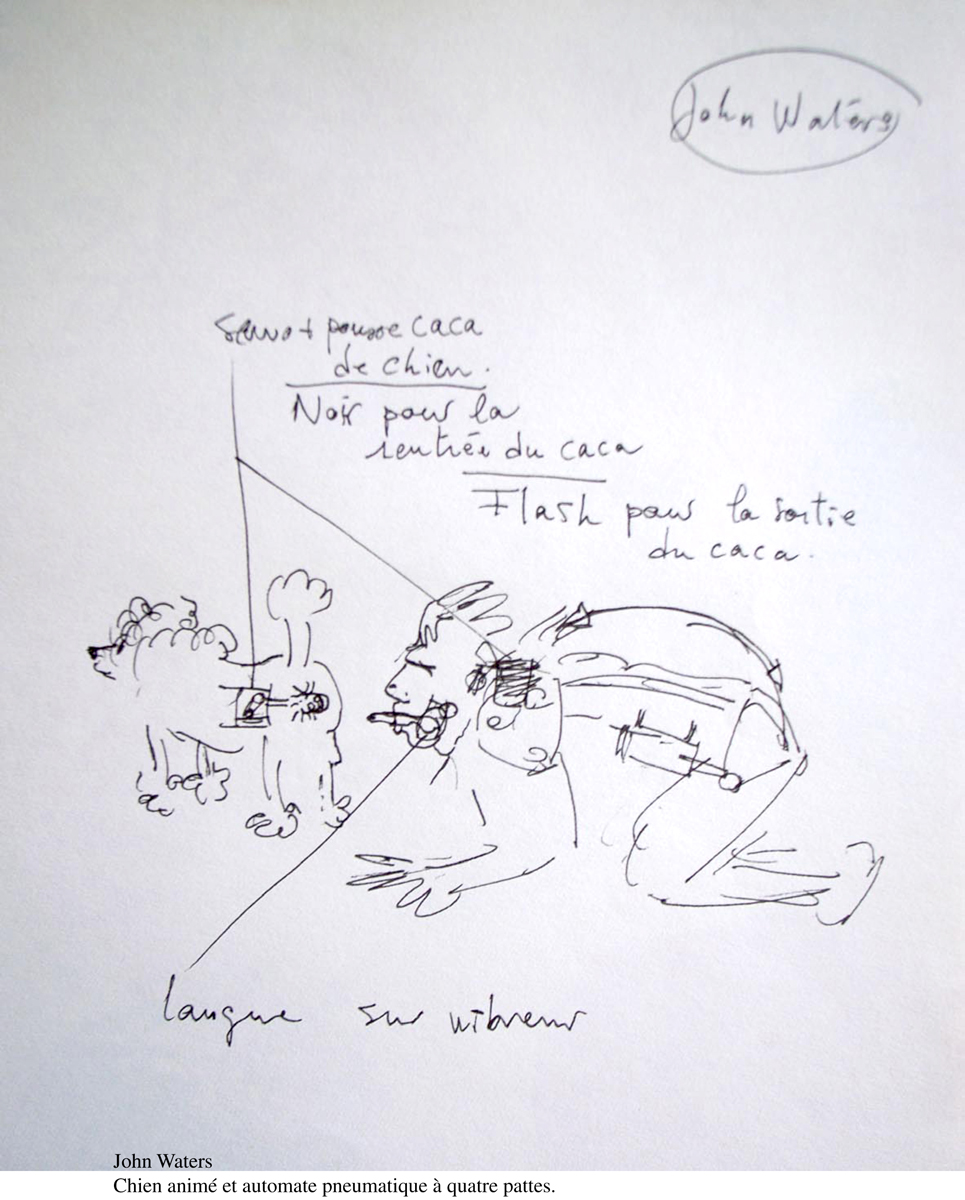 John Waters
Servo + pousse caca
de chien.
Noir pour la
rentrée du caca
Flash pour la sortie
du caca.
langue sur vibreur
John Waters
Chien animé et automate pneumatique à quatre pattes.